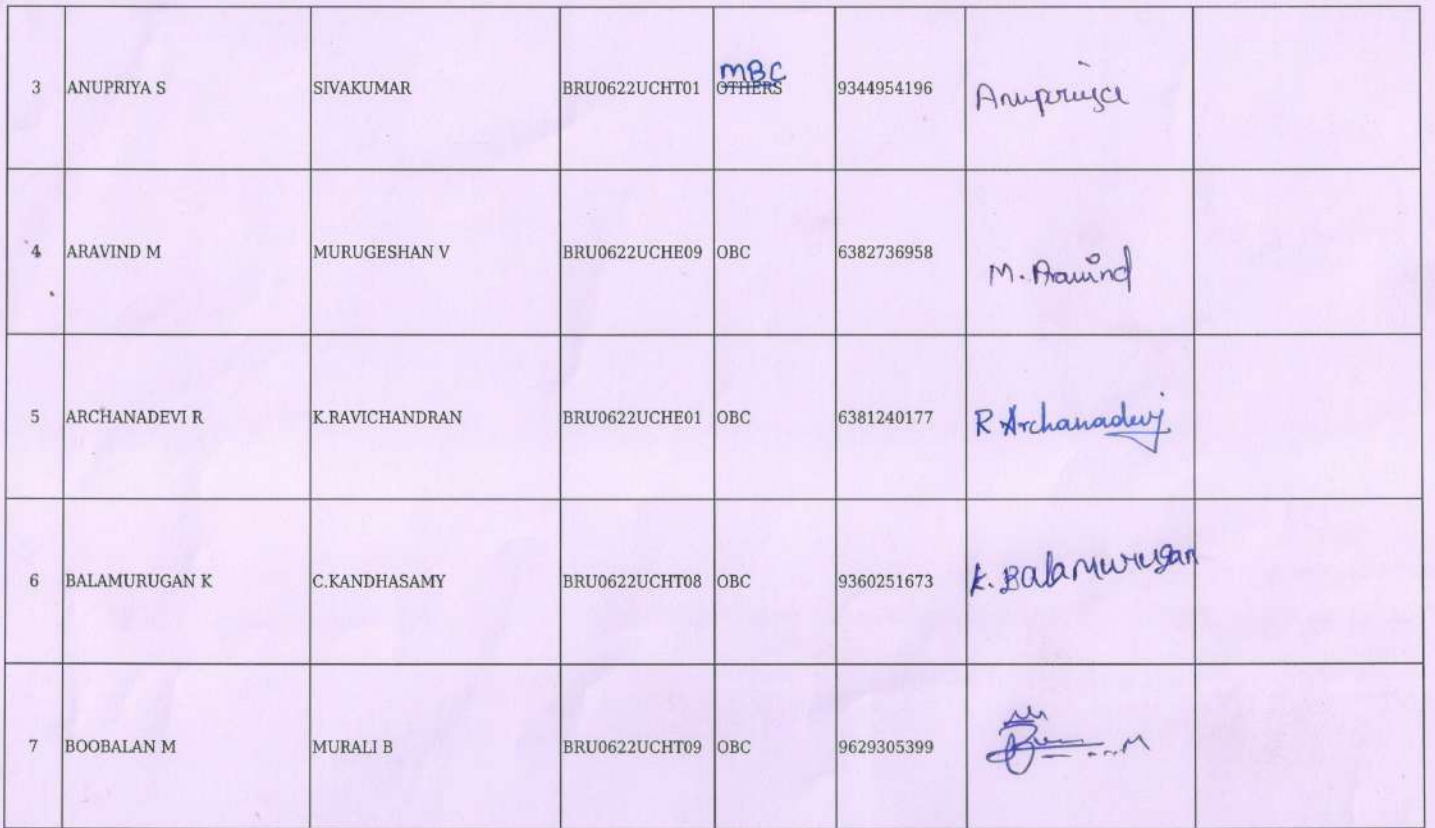 3 ANUPRIYA S SIVAKUMAR BRU0622UCHT01 MBC OTHERS 9344954196 Anupriya
4 ARAVIND M MURUGESHAN V BRU0622UCHE09 OBC 6382736958 M. Aravind
5 ARCHANADEVI R K.RAVICHANDRAN BRU0622UCHE01 OBC 6381240177 R Archanadevi
6 BALAMURUGAN K C.KANDHASAMY BRU0622UCHT08 OBC 9360251673 K. Balamurugan
7 BOOBALAN M MURALI B BRU0622UCHT09 OBC 9629305399